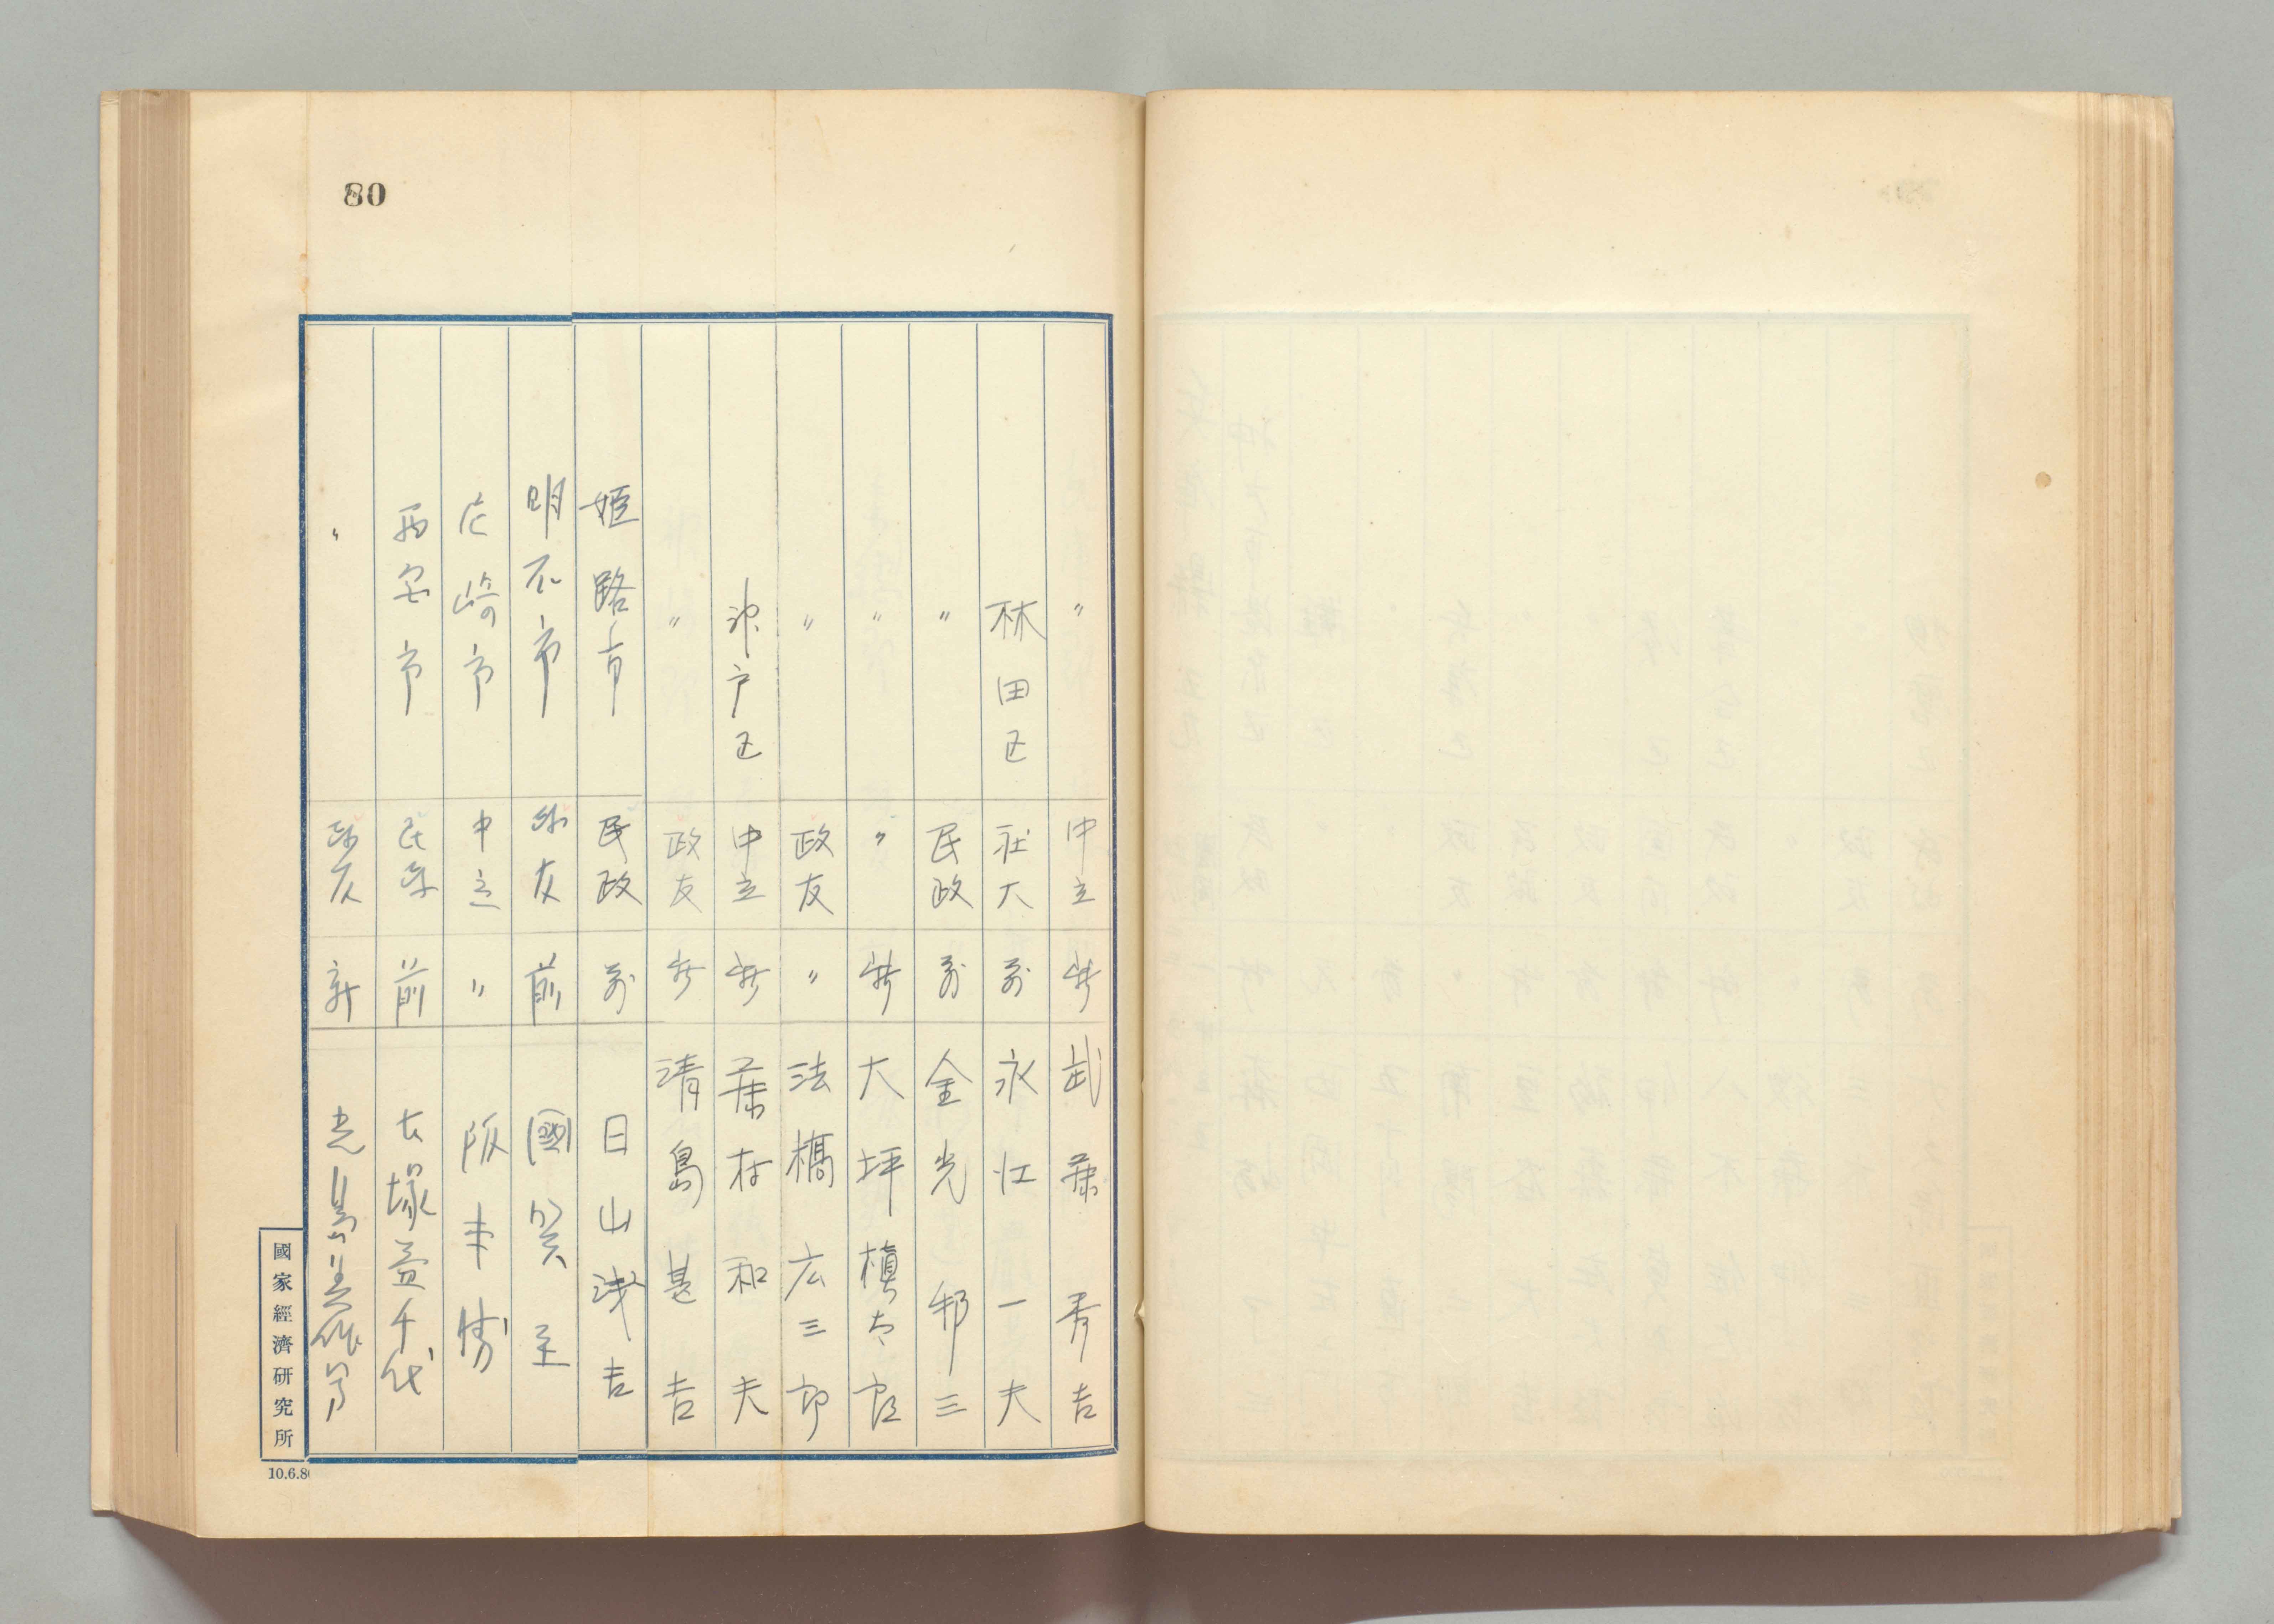 80
〃 中立 新 武藤秀吉
林田区 社大 前 永江一夫
〃 民政 前 金光邦三
〃 〃 新 大坪槙太郎
〃 政友 〃 法橋広三郎
神戸区 中立 新 藤村和夫
〃 政友 新 清島甚吉
姫路市 民政 前 日山浅吉
明石市 政友 前 國 至
尼崎市 中立 〃 阪本勝
西宮市 民政 前 大塚益千代
〃 政友 新
國家經濟研究所
10.6.80